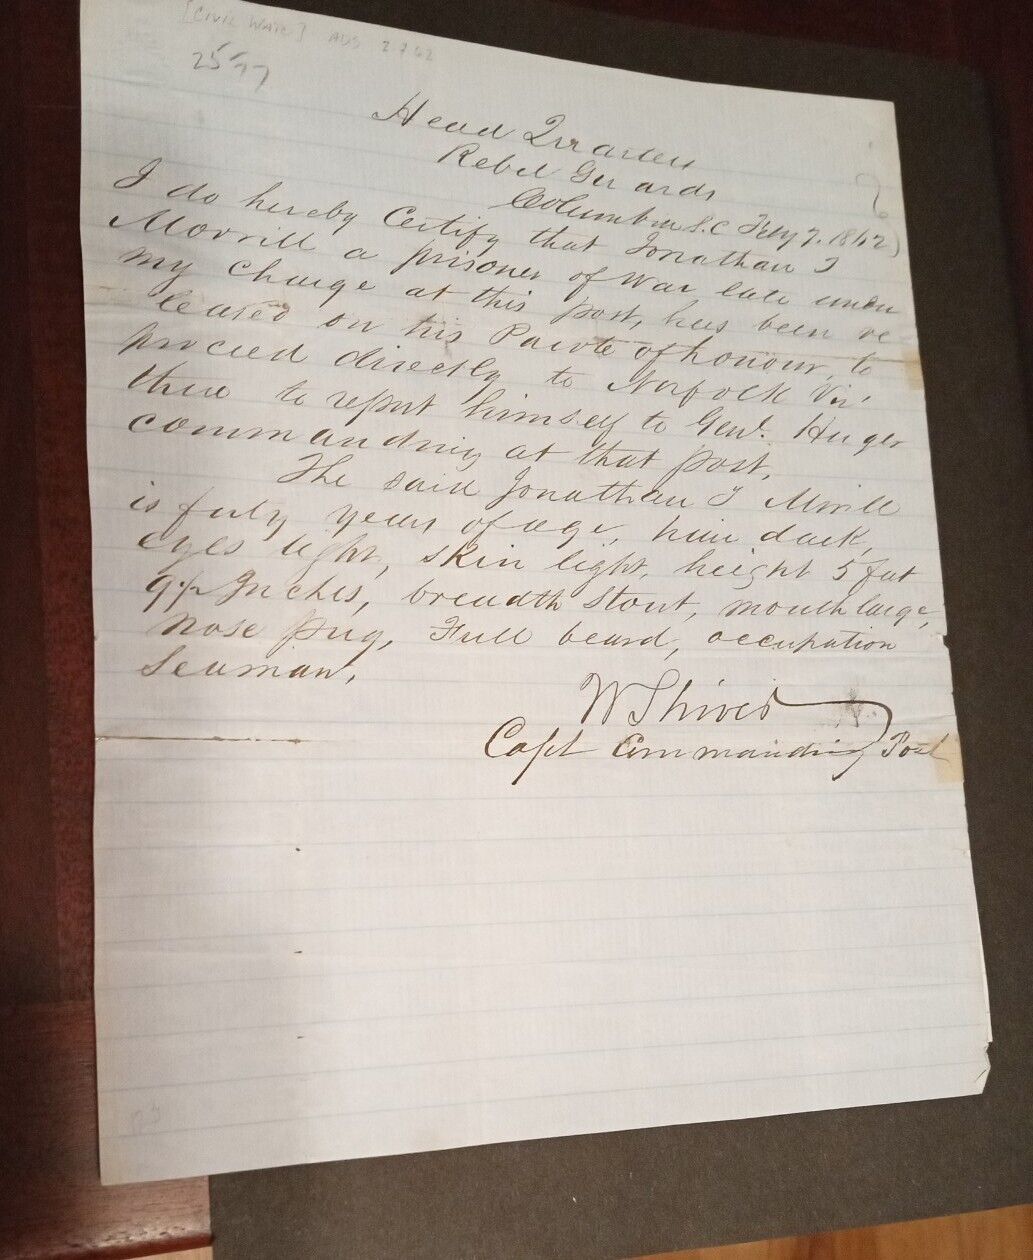 [CIVIL WAR] AUG 27 62
2577
Head Quarters
Rebel Guards
Columbia S.C. Feby 7. 1862)
I do hereby Certify that Jonathan T
Morrill a prisoner of War late under
my charge at this post, has been re-
leased on his Parole of honour, to
proceed directly to Norfolk Vir,
there to report himself to Genl. Huger
commanding at that post.
The said Jonathan T Morrill
is forty years of age, hair dark,
eyes light, skin light, height 5 feet
9½ Inches, breadth Stout, mouth large,
nose pug, Full beard, occupation
Seaman.
W Shiver
Capt Commanding Post